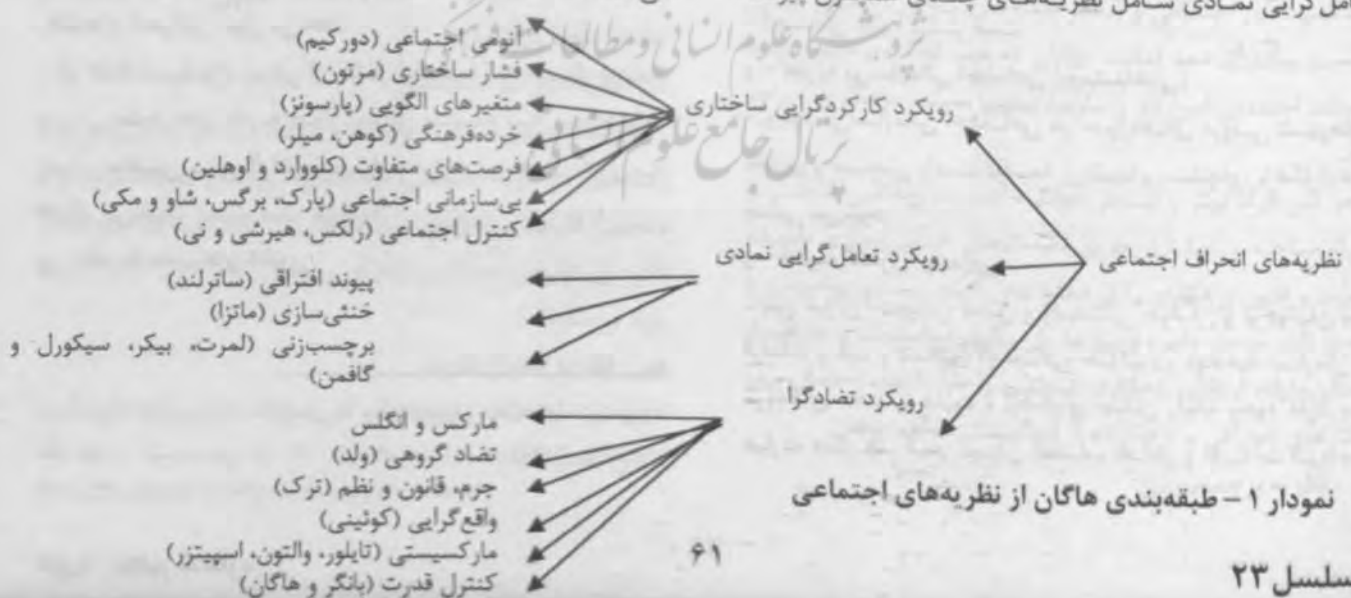 امل‌گرایی نمادی شامل نظریه‌های چندی
پژوهشگاه علوم انسانی و مطالعات فرهنگی
پرتال جامع علوم انسانی
نظریه‌های انحراف اجتماعی
رویکرد کارکردگرایی ساختاری
آنومی اجتماعی (دورکیم)
فشار ساختاری (مرتون)
متغیرهای الگویی (پارسونز)
خرده‌فرهنگی (کوهن، میلر)
فرصت‌های متفاوت (کلووارد و اوهلین)
بی‌سازمانی اجتماعی (پارک، برگس، شاو و مکی)
کنترل اجتماعی (رلکس، هیرشی و نی)
رویکرد تعامل‌گرایی نمادی
پیوند افتراقی (ساترلند)
خنثی‌سازی (ماتزا)
برچسب‌زنی (لمرت، بیکر، سیکورل و
گافمن)
رویکرد تضادگرا
مارکس و انگلس
تضاد گروهی (ولد)
جرم، قانون و نظم (ترک)
واقع‌گرایی (کوئینی)
مارکسیستی (تایلور، والتون، اسپیتزر)
کنترل قدرت (بانگر و هاگان)
نمودار ۱ – طبقه‌بندی هاگان از نظریه‌های اجتماعی
۶۱
سلسل ۲۳